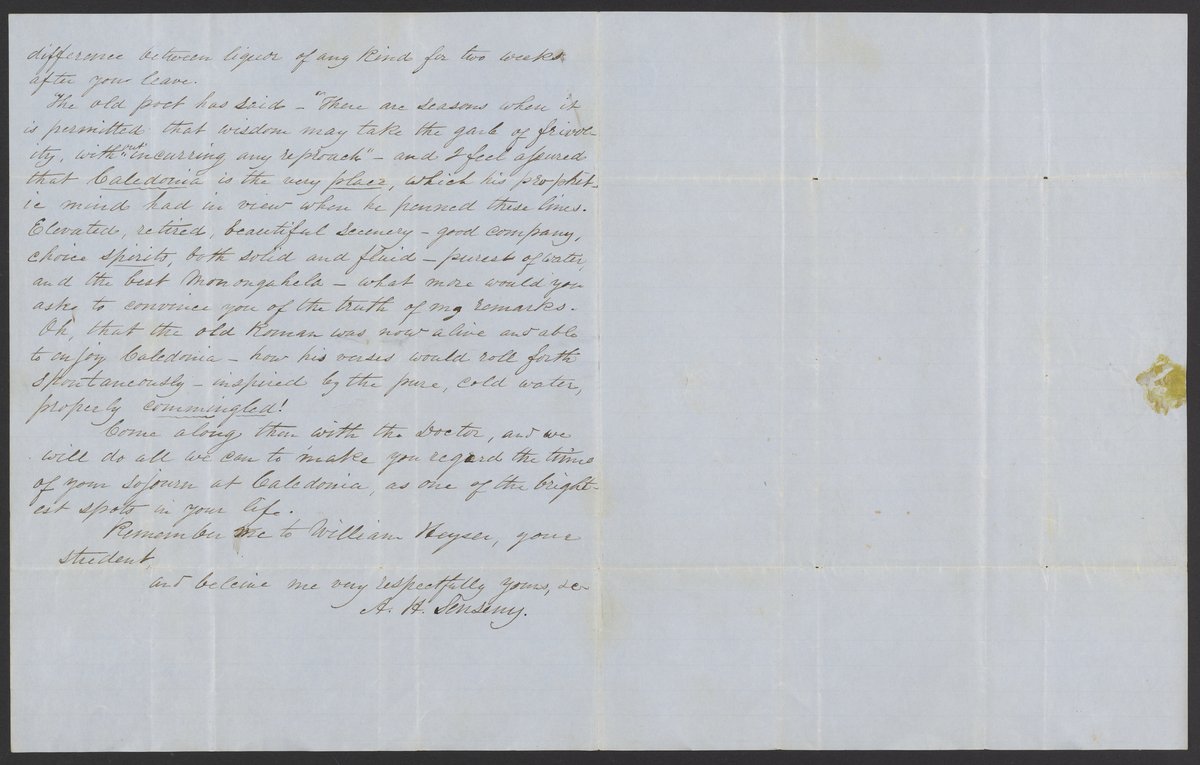 difference between liquor of any kind for two weeks
after you leave.
The old poet has said – "There are seasons when it
is permitted that wisdom may take the garb of frivol-
ity, without incurring any reproach" – and I feel assured
that Caledonia is the very place, which his prophet-
ic mind had in view when he penned these lines.
Elevated, retired, beautiful scenery – good company,
choice spirits, both solid and fluid – purest of water,
and the best Monongahela – what more would you
aske to convince you of the truth of my remarks.
Oh, that the old Roman was now alive and able
to enjoy Caledonia – how his verses would roll forth
spontaneously – inspired by the pure, cold water,
properly commingled!
Come along then with the Doctor, and we
will do all we can to make you regard the time
of your sojourn at Caledonia, as one of the bright-
est spots in your life.
Remember me to William Heyser, your
student,
and beleive me very respectfully yours, &c
A. H. Senseny.